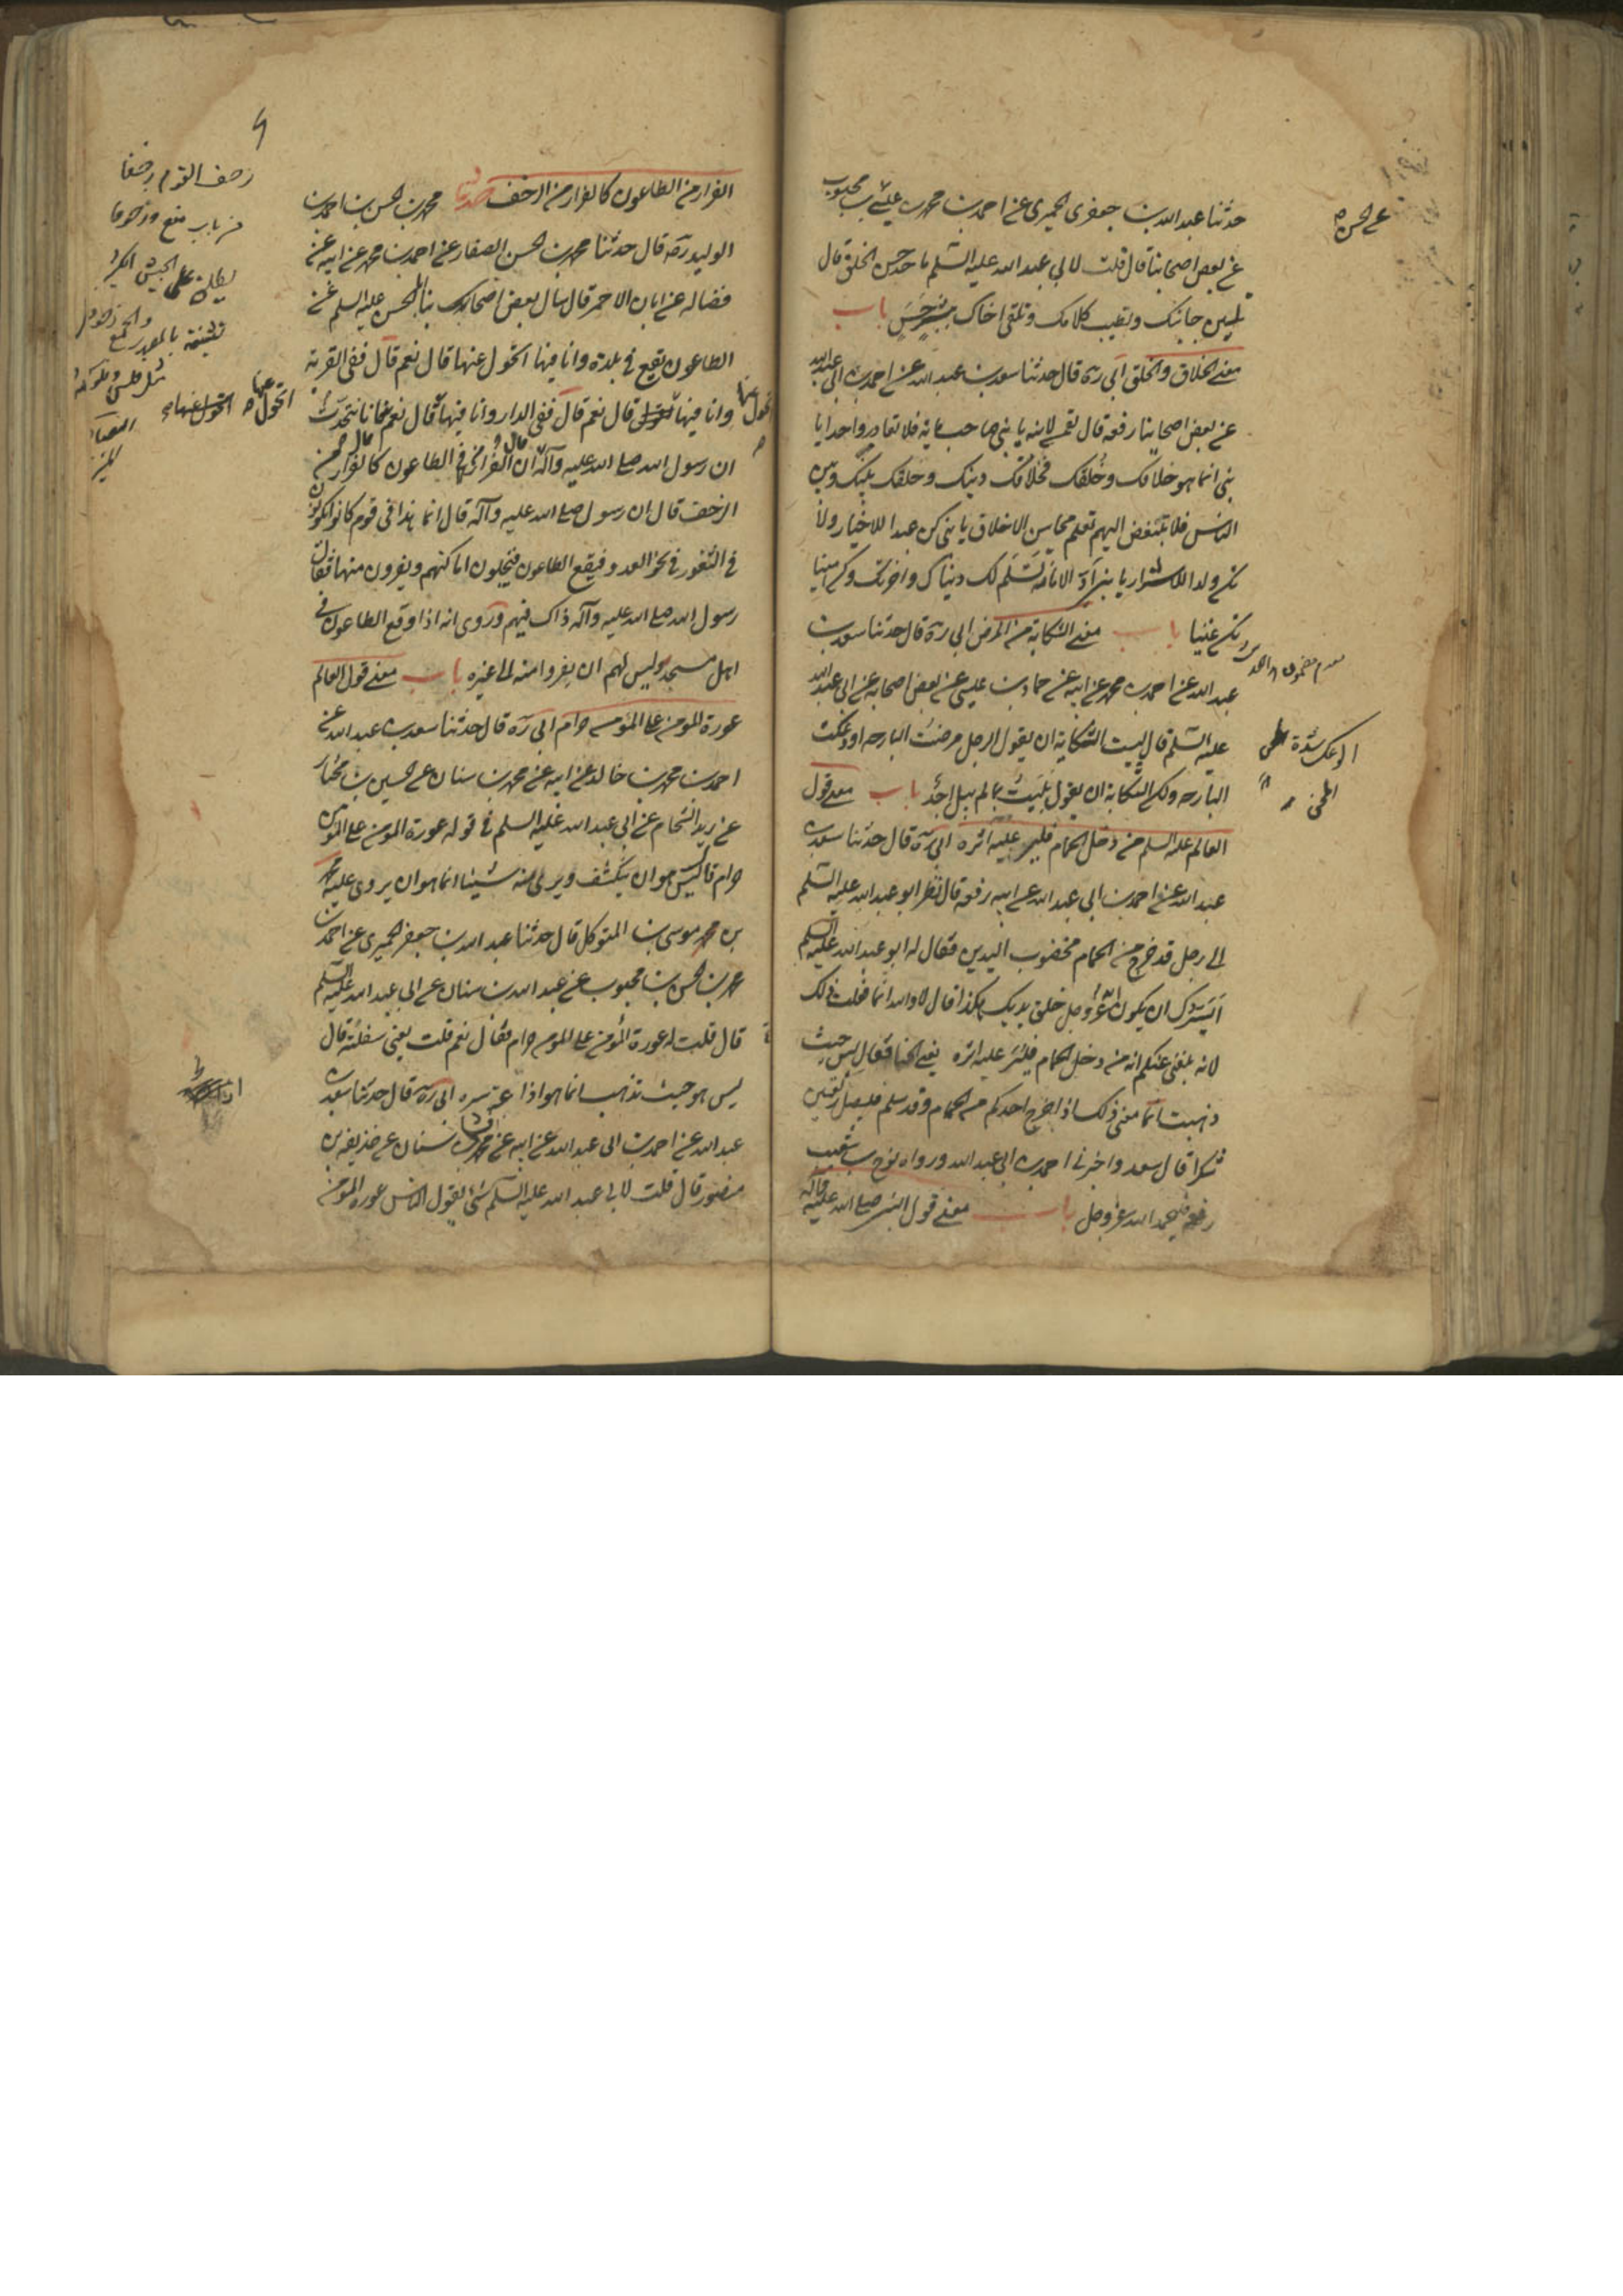 حدثنا عبد الله بن جعفر الحميري عن احمد بن محمد بن عيسى بن محبوب
عن بعض اصحابنا قال قلت لابي عبد الله عليه السلم ما حد حسن الخلق قال
تليين جانبك وتطيب كلامك وتلقى اخاك ببشر حسن باب
معنى الخلاق والخلق ابي ره قال حدثنا سعد بن عبد الله عن احمد بن ابي عبد الله
عن بعض اصحابنا رفعه قال لقمن لابنه يا بني صاحب مائة فلا تعاد واحدا يا
بني انما هو خلاقك وخلقك فخلاقك دينك وخلقك بينك وبين
الناس فلا تبتغض اليهم تعلم محاسن الاخلاق يا بني كن عبدا للاخيار ولا
تكن ولدا للاشرار يا بني اد الامانة تسلم لك دنياك واخرتك وكن امينا
تكن غنيا باب معنى الشكاية من المرض ابي ره قال حدثنا سعد بن
عبد الله عن احمد بن محمد عن ابيه عن حماد بن عيسى عن بعض اصحابه عن ابي عبد الله
عليه السلم قال ليست الشكاية ان يقول الرجل مرضت البارحه او وعكت
البارحه ولكن الشكاية ان يقول بليت بما لم يبل احد باب معنى قول
العالم عليه السلم من دخل الحمام فلير عليه اثره ابي ره قال حدثنا سعد بن
عبد الله عن احمد بن ابي عبد الله عن ابيه رفعه قال نظر ابو عبد الله عليه السلم
الى رجل قد خرج من الحمام مخضوب اليدين فقال له ابو عبد الله عليه السلم
ايسرك ان يكون الله عز وجل خلق يديك هكذا قال لا والله انما فعلت ذلك
لانه بلغني عنكم انه من دخل الحمام فلير عليه اثره يعني الحنا فقال ليس حيث
ذهبت انما معنى ذلك اذا خرج احدكم من الحمام وقد سلم فليصل ركعتين
شكرا قال سعد واخبرني احمد بن ابي عبد الله ورواه نوح بن شعيب
رفعه فليحمد الله عز وجل باب معنى قول النبي صلى الله عليه وآله
عن الحسن
الوعك شدة الحمى
الفرار من الطاعون كالفرار من الزحف حدثنا محمد بن الحسن بن احمد بن
الوليد رضه قال حدثنا محمد بن الحسن الصفار عن احمد بن محمد عن ابيه عن
فضاله عن ابان الاحمر قال سال بعض اصحابنا ابا الحسن عليه السلم عن
الطاعون يقع في بلدة وانا فيها اتحول عنها قال نعم قال ففي القرية
وانا فيها اتحول عنها قال نعم قال ففي الدار وانا فيها قال نعم فانا نتحدث
ان رسول الله صلى الله عليه وآله قال الفرار من الطاعون كالفرار من
الزحف قال ان رسول الله صلى الله عليه وآله قال انما هذا في قوم كانوا يكونون
في الثغور في نحو العدو فيقع الطاعون فيخلون اماكنهم ويفرون منها فقال
رسول الله صلى الله عليه وآله ذلك فيهم وروى انه اذا وقع الطاعون في
اهل مسجد فليس لهم ان يفروا منه الى غيره باب معنى قول العالم
عورة المومن على المومن حرام ابي ره قال حدثنا سعد بن عبد الله عن
احمد بن محمد بن خالد عن ابيه عن محمد بن سنان عن الحسين بن مختار
عن زيد الشحام عن ابي عبد الله عليه السلم في قوله عورة المومن على المومن
حرام قال ليس هو ان ينكشف ويرى منه شيئا انما هو ان يروى عليه محمد
بن موسى بن المتوكل قال حدثنا عبد الله بن جعفر الحميري عن احمد بن
محمد بن الحسن بن محبوب عن عبد الله بن سنان عن ابي عبد الله عليه السلم
قال قلت له عورة المومن على المومن حرام فقال نعم قلت يعني سفلته قال
ليس هو حيث تذهب انما هو اذاعة سره ابي ره قال حدثنا سعد بن
عبد الله عن احمد بن ابي عبد الله عن ابيه عن محمد بن سنان عن حذيفه بن
منصور قال قلت لابي عبد الله عليه السلم شئ يقول الناس عورة المومن
زحف القوم زحفا
من باب منع وزحوفا
يطلق على الجيش الكثير
تسمية بالمصدر والجمع زحوف
مثل فلس وفلوس
المصباح
المنير
اتحول عنها